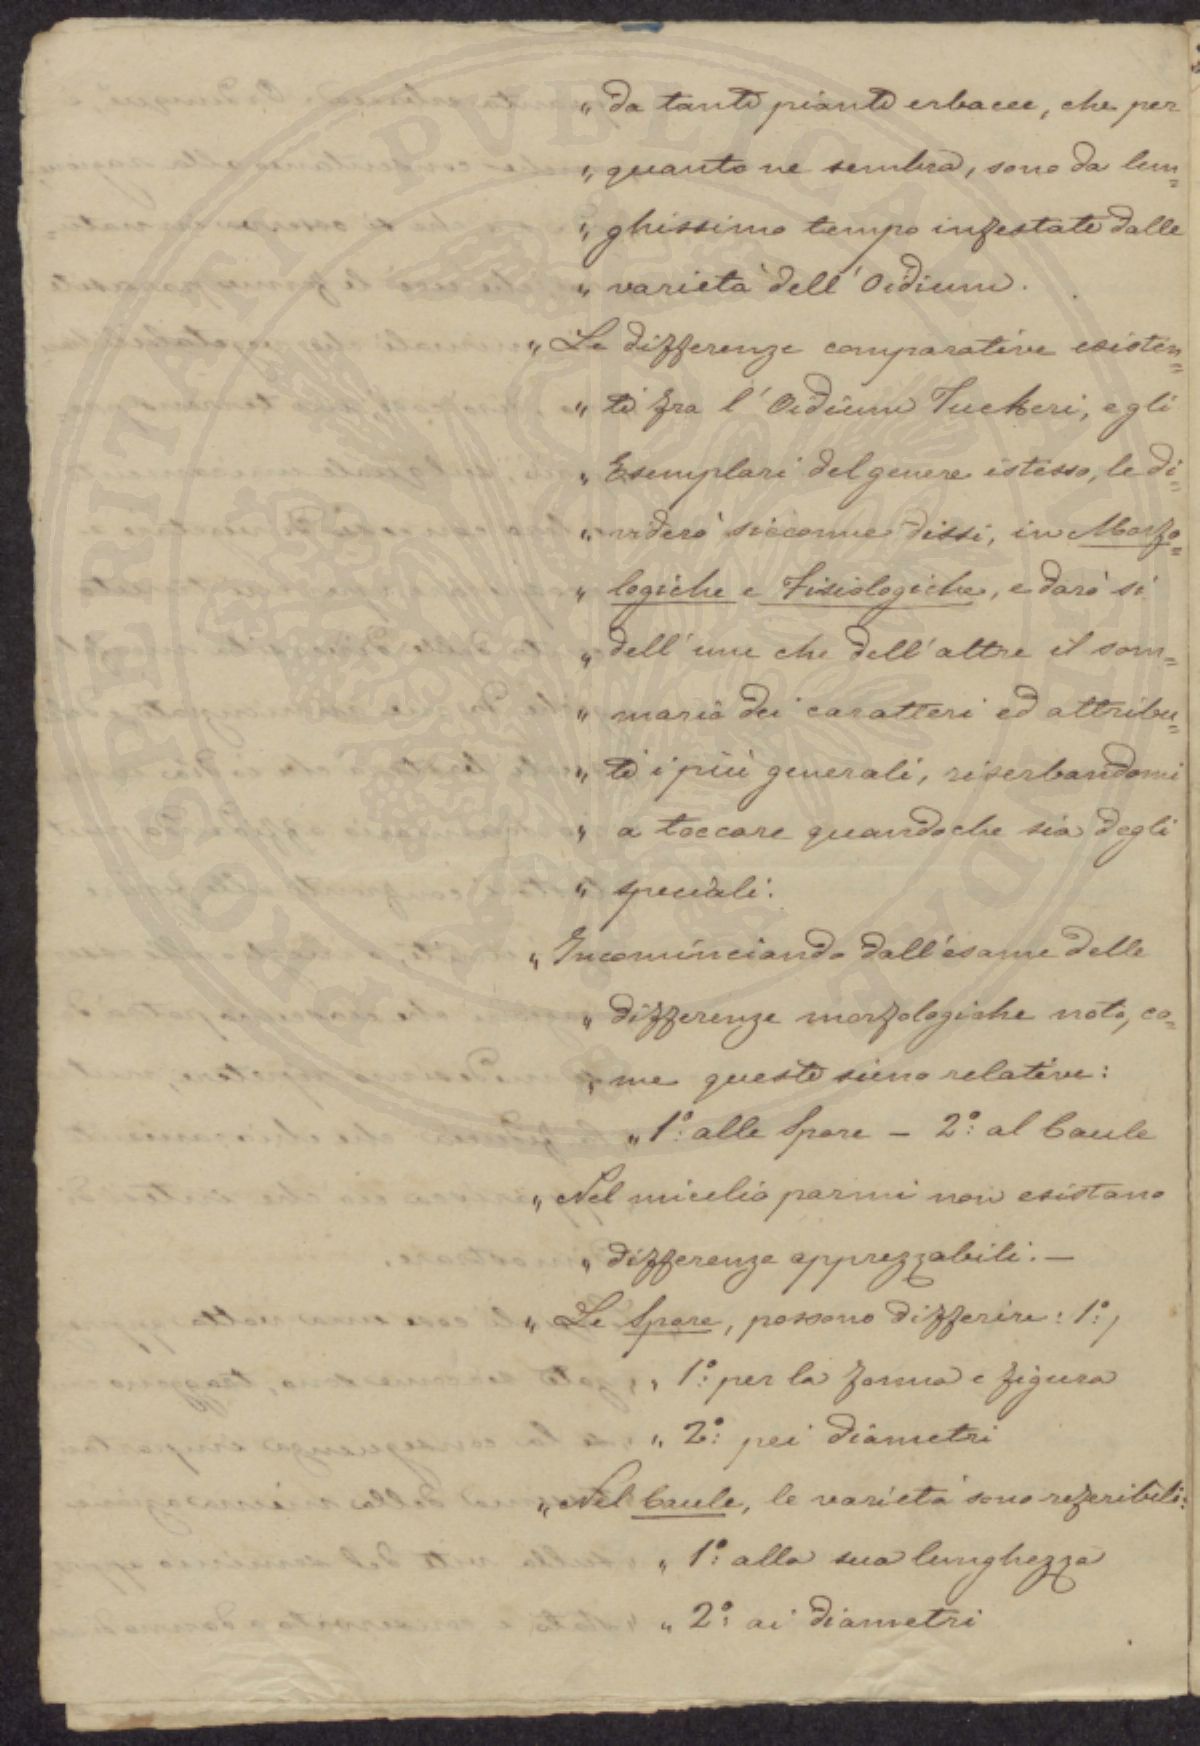 „ da tante piante erbacee, che per
„ quanto ne sembra, sono da lun=
„ ghissimo tempo infestate dalle
„ varietà dell' Oidium.
„ Le differenze comparative esisten=
„ ti fra l' Oidium Tuckeri, e gli
„ Esemplari del genere istesso, le di=
„ viderò siccome dissi, in Morfo=
„ logiche e Fisiologiche, e darò sì
„ dell' une che dell' altre il som=
„ mario dei caratteri ed attribu=
„ ti i più generali, riserbandomi
„ a toccare quandoche sia degli
„ speciali:
„ Incominciando dall' esame delle
„ differenze morfologiche noto, co=
„ me queste sieno relative:
„ 1°: alle Spore – 2°: al Caule
„ Nel micelio parmi non esistano
„ differenze apprezzabili. —
„ Le Spore, possono differire: 1°;
„ 1°: per la forma e figura
„ 2°: pei diametri
„ Nel Caule, le varietà sono referibili:
„ 1°: alla sua lunghezza
„ 2°: ai diametri